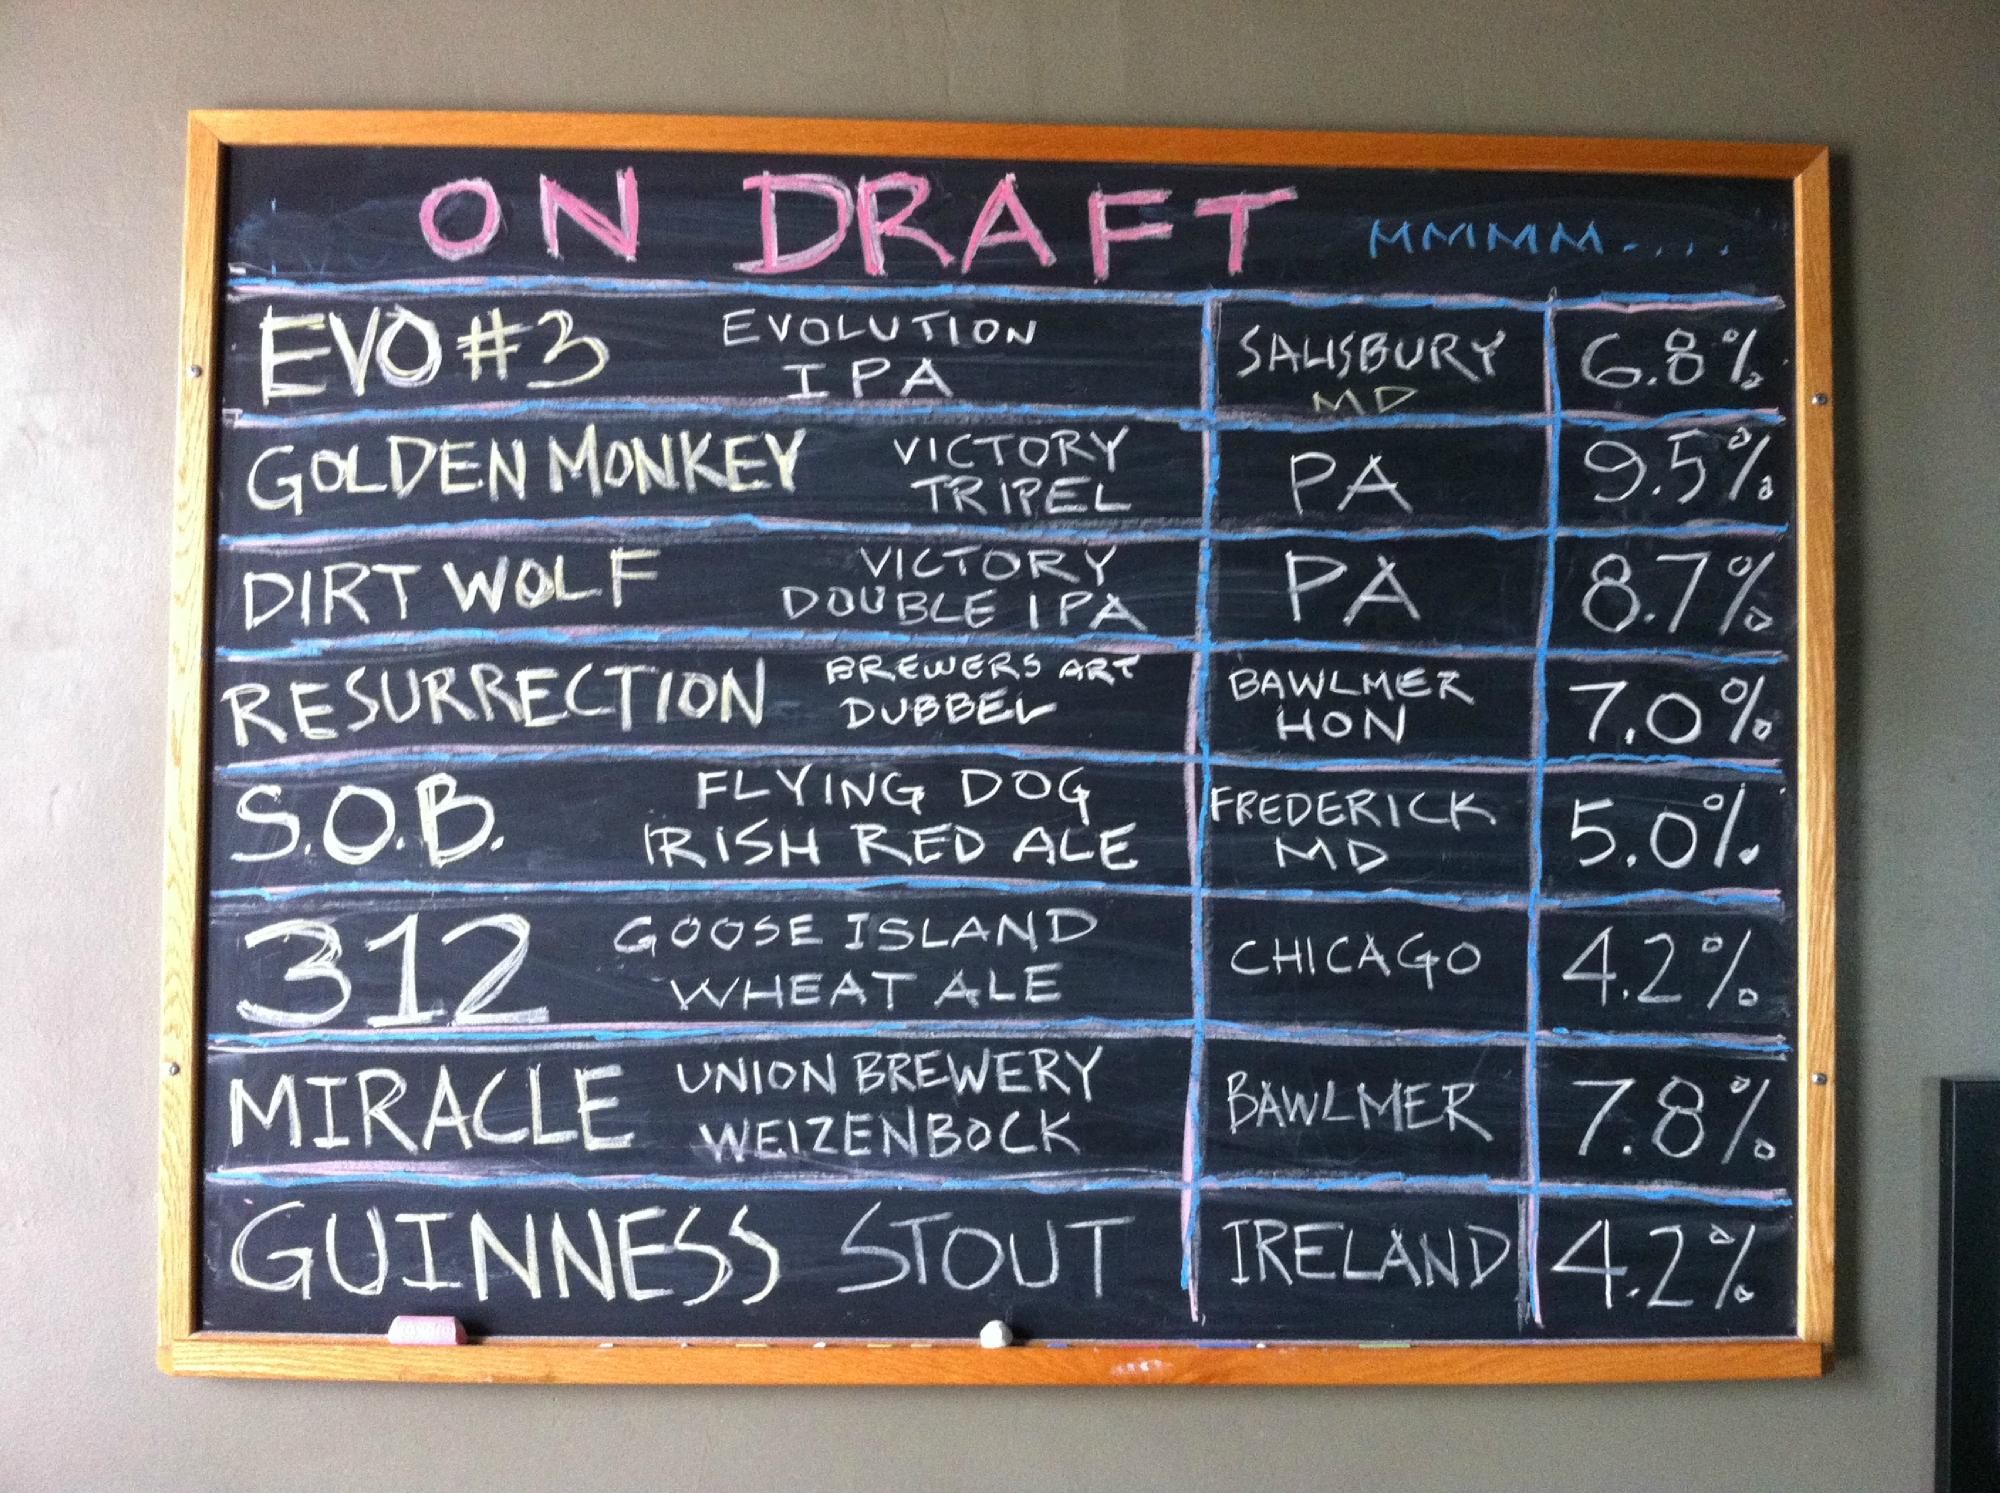 ON DRAFT MMMM....
EVO #3 EVOLUTION IPA SALISBURY MD 6.8%
GOLDEN MONKEY VICTORY TRIPEL PA 9.5%
DIRT WOLF VICTORY DOUBLE IPA PA 8.7%
RESURRECTION BREWERS ART DUBBEL BAWLMER HON 7.0%
S.O.B. FLYING DOG IRISH RED ALE FREDERICK MD 5.0%
312 GOOSE ISLAND WHEAT ALE CHICAGO 4.2%
MIRACLE UNION BREWERY WEIZENBOCK BAWLMER 7.8%
GUINNESS STOUT IRELAND 4.2%